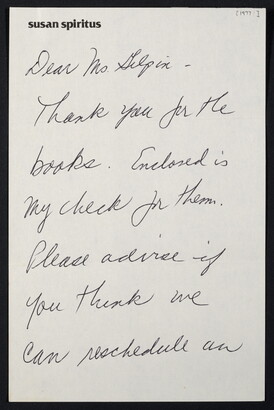 [1977]
susan spiritus
Dear Ms. Gilpin -
Thank you for the
books. Enclosed is
my check for them.
Please advise if
you think we
can reschedule an